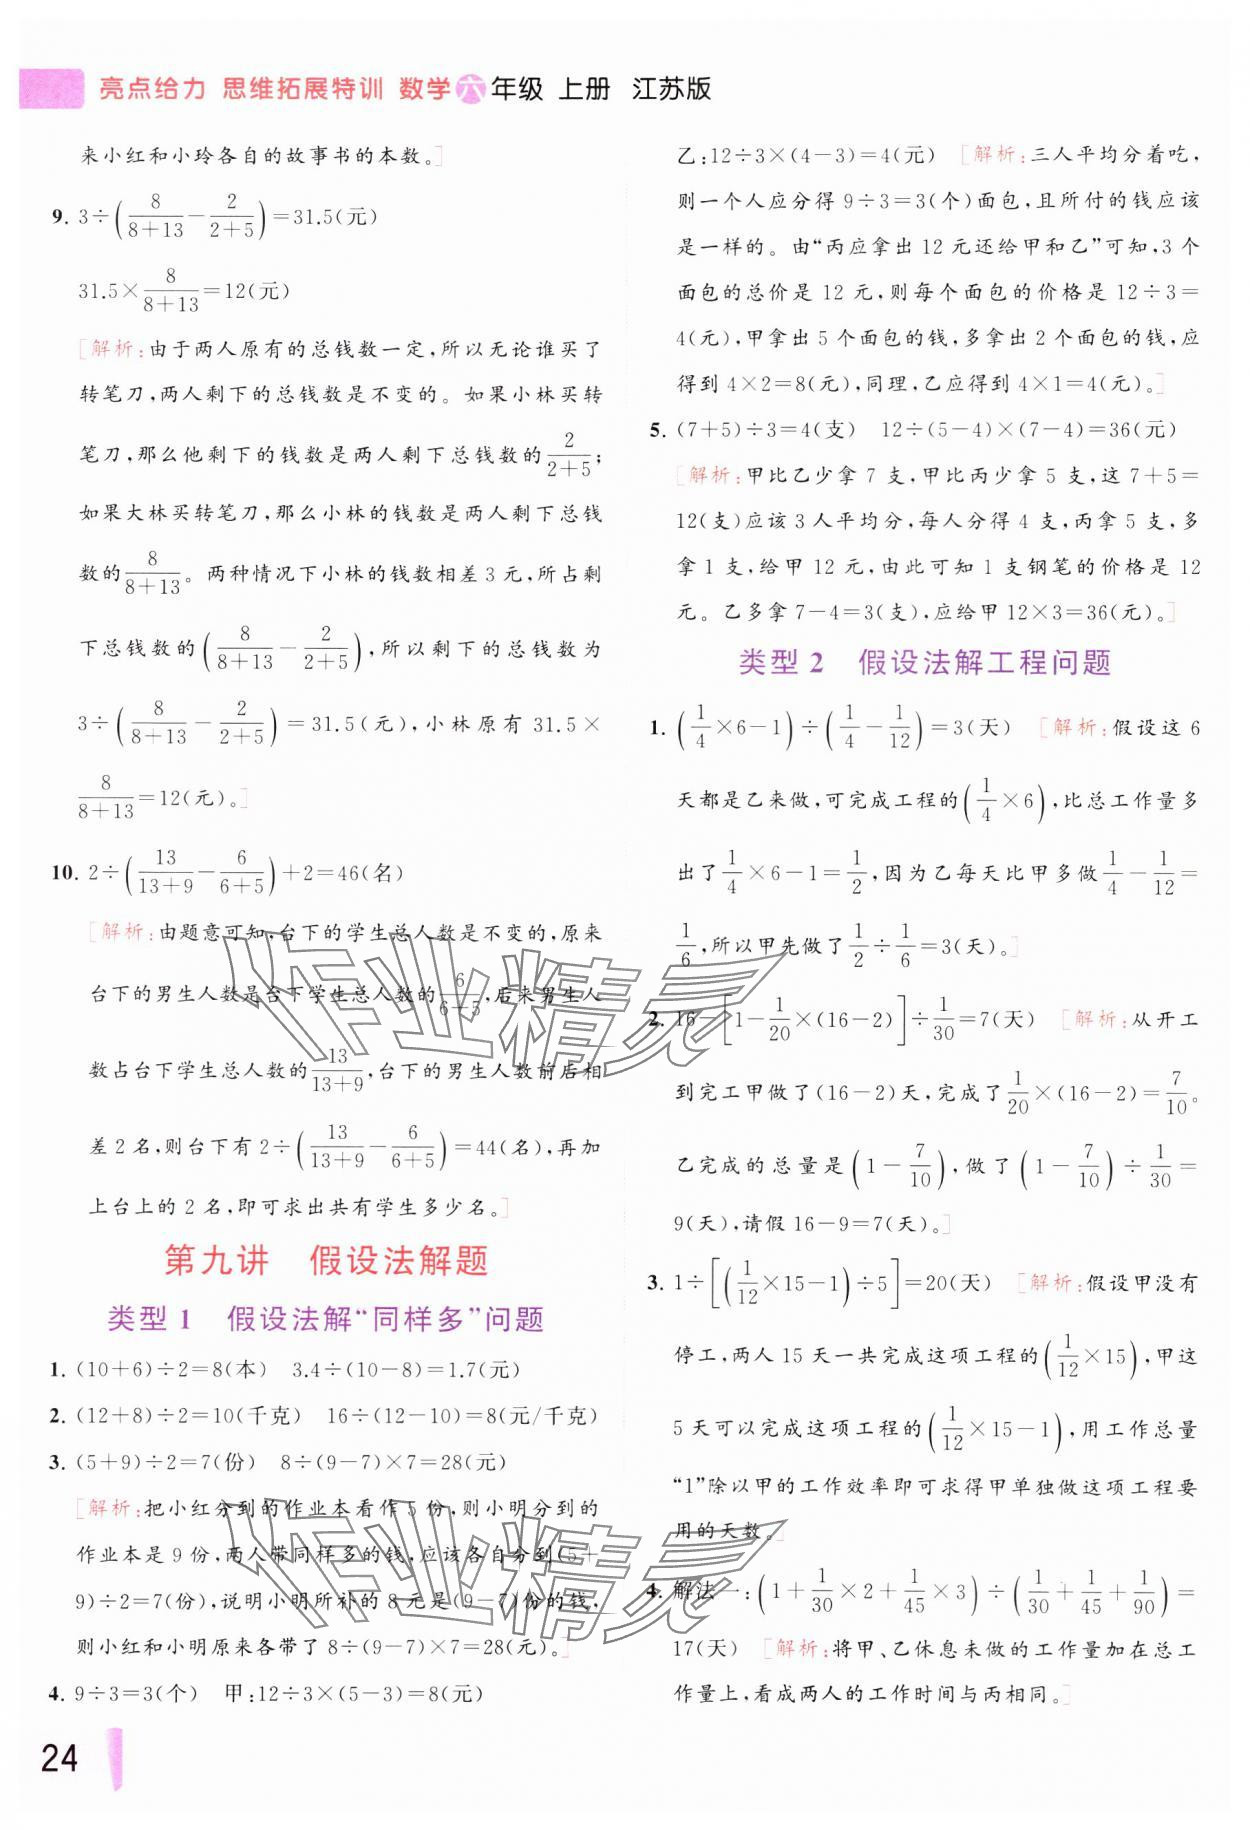 亮点给力 思维拓展特训 数学六年级 上册 江苏版
来小红和小玲各自的故事书的本数。]
9. 3÷(8/(8+13)-2/(2+5))=31.5(元)
31.5×8/(8+13)=12(元)
[解析:由于两人原有的总钱数一定,所以无论谁买了
转笔刀,两人剩下的总钱数是不变的。如果小林买转
笔刀,那么他剩下的钱数是两人剩下总钱数的2/(2+5);
如果大林买转笔刀,那么小林的钱数是两人剩下总钱
数的8/(8+13)。两种情况下小林的钱数相差3元,所占剩
下总钱数的(8/(8+13)-2/(2+5)),所以剩下的总钱数为
3÷(8/(8+13)-2/(2+5))=31.5(元),小林原有 31.5×
8/(8+13)=12(元)。]
10. 2÷(13/(13+9)-6/(6+5))+2=46(名)
[解析:由题意可知,台下的学生总人数是不变的,原来
台下的男生人数是台下学生总人数的6/(6+5),后来男生人
数占台下学生总人数的13/(13+9),台下的男生人数前后相
差2名,则台下有2÷(13/(13+9)-6/(6+5))=44(名),再加
上台上的2名,即可求出共有学生多少名。]
第九讲 假设法解题
类型1 假设法解“同样多”问题
1. (10+6)÷2=8(本) 3.4÷(10-8)=1.7(元)
2. (12+8)÷2=10(千克) 16÷(12-10)=8(元/千克)
3. (5+9)÷2=7(份) 8÷(9-7)×7=28(元)
[解析:把小红分到的作业本看作5份,则小明分到的
作业本是9份,两人带同样多的钱,应该各自分到(5+
9)÷2=7(份),说明小明所补的8元是(9-7)份的钱,
则小红和小明原来各带了8÷(9-7)×7=28(元)。]
4. 9÷3=3(个) 甲:12÷3×(5-3)=8(元)
乙:12÷3×(4-3)=4(元) [解析:三人平均分着吃,
则一个人应分得9÷3=3(个)面包,且所付的钱应该
是一样的。由“丙应拿出12元还给甲和乙”可知,3个
面包的总价是12元,则每个面包的价格是12÷3=
4(元),甲拿出5个面包的钱,多拿出2个面包的钱,应
得到4×2=8(元),同理,乙应得到4×1=4(元)。]
5. (7+5)÷3=4(支) 12÷(5-4)×(7-4)=36(元)
[解析:甲比乙少拿7支,甲比丙少拿5支,这7+5=
12(支)应该3人平均分,每人分得4支,丙拿5支,多
拿1支,给甲12元,由此可知1支钢笔的价格是12
元。乙多拿7-4=3(支),应给甲12×3=36(元)。]
类型2 假设法解工程问题
1. (1/4×6-1)÷(1/4-1/12)=3(天) [解析:假设这6
天都是乙来做,可完成工程的(1/4×6),比总工作量多
出了1/4×6-1=1/2,因为乙每天比甲多做1/4-1/12=
1/6,所以甲先做了1/2÷1/6=3(天)。]
2. 16-[1-1/20×(16-2)]÷1/30=7(天) [解析:从开工
到完工甲做了(16-2)天,完成了1/20×(16-2)=7/10。
乙完成的总量是(1-7/10),做了(1-7/10)÷1/30=
9(天),请假16-9=7(天)。]
3. 1÷[(1/12×15-1)÷5]=20(天) [解析:假设甲没有
停工,两人15天一共完成这项工程的(1/12×15),甲这
5天可以完成这项工程的(1/12×15-1),用工作总量
“1”除以甲的工作效率即可求得甲单独做这项工程要
用的天数。]
4. 解法一:(1+1/30×2+1/45×3)÷(1/30+1/45+1/90)=
17(天) [解析:将甲、乙休息未做的工作量加在总工
作量上,看成两人的工作时间与丙相同。]
24
作业精灵
作业精灵